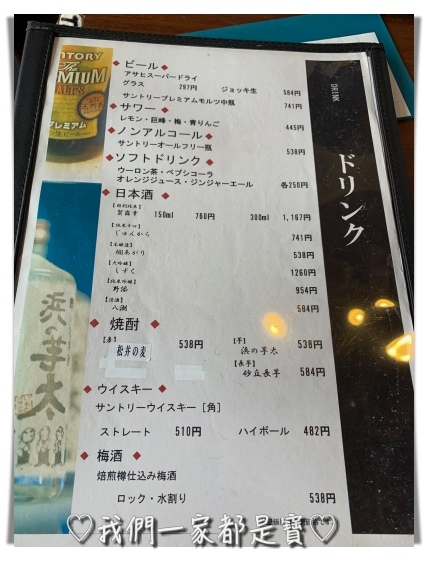 SUNTORY
The
PREMIUM
MALT'S
プレミアム
浜の芋太
DRINK
ドリンク
◆ ビール ◆
アサヒスーパードライ
グラス 297円 ジョッキ生 584円
サントリープレミアムモルツ中瓶 741円
◆ サワー ◆
レモン・巨峰・梅・青りんご 445円
◆ ノンアルコール ◆
サントリーオールフリー瓶 538円
◆ ソフトドリンク ◆
ウーロン茶・ペプシコーラ
オレンジジュース・ジンジャーエール 各250円
◆ 日本酒 ◆
【特別純米】
賀露幸 150ml 760円 300ml 1,167円
【純米辛口】
じゅんから 741円
【本醸造】
槽あがり 538円
【大吟醸】
しずく 1260円
【純米吟醸】
野添 954円
【清酒】
八潮 584円
◆ 焼酎 ◆
【麦】
松井の麦 538円
【芋】
浜の芋太 538円
【長芋】
砂丘長芋 584円
◆ ウイスキー ◆
サントリーウイスキー［角］
ストレート 510円 ハイボール 482円
◆ 梅酒 ◆
焙煎樽仕込み梅酒
ロック・水割り 538円
♡我們一家都是寶♡